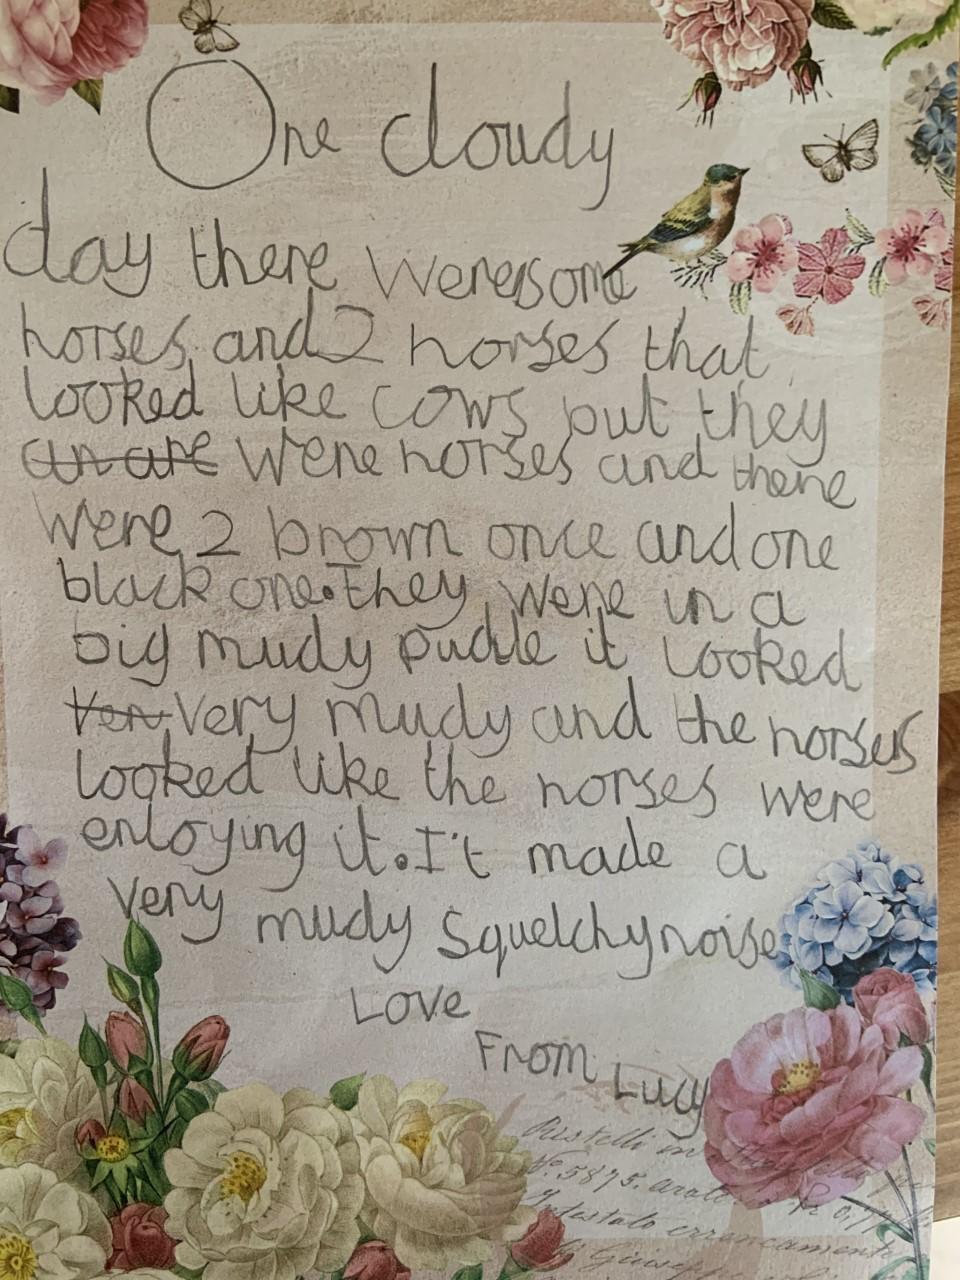 One cloudy
day there were some
horses and 2 horses that
looked like cows but they
an are were horses and there
were 2 brown once and one
black one. they were in a
big mudy pudle it looked
Very very mudy and the horses
looked like the horses were
enloying it. I't made a
very mudy squelchy noise
Love
From Lucy
Pistelli in
N.° 5875. arato
errancamente
Giusep